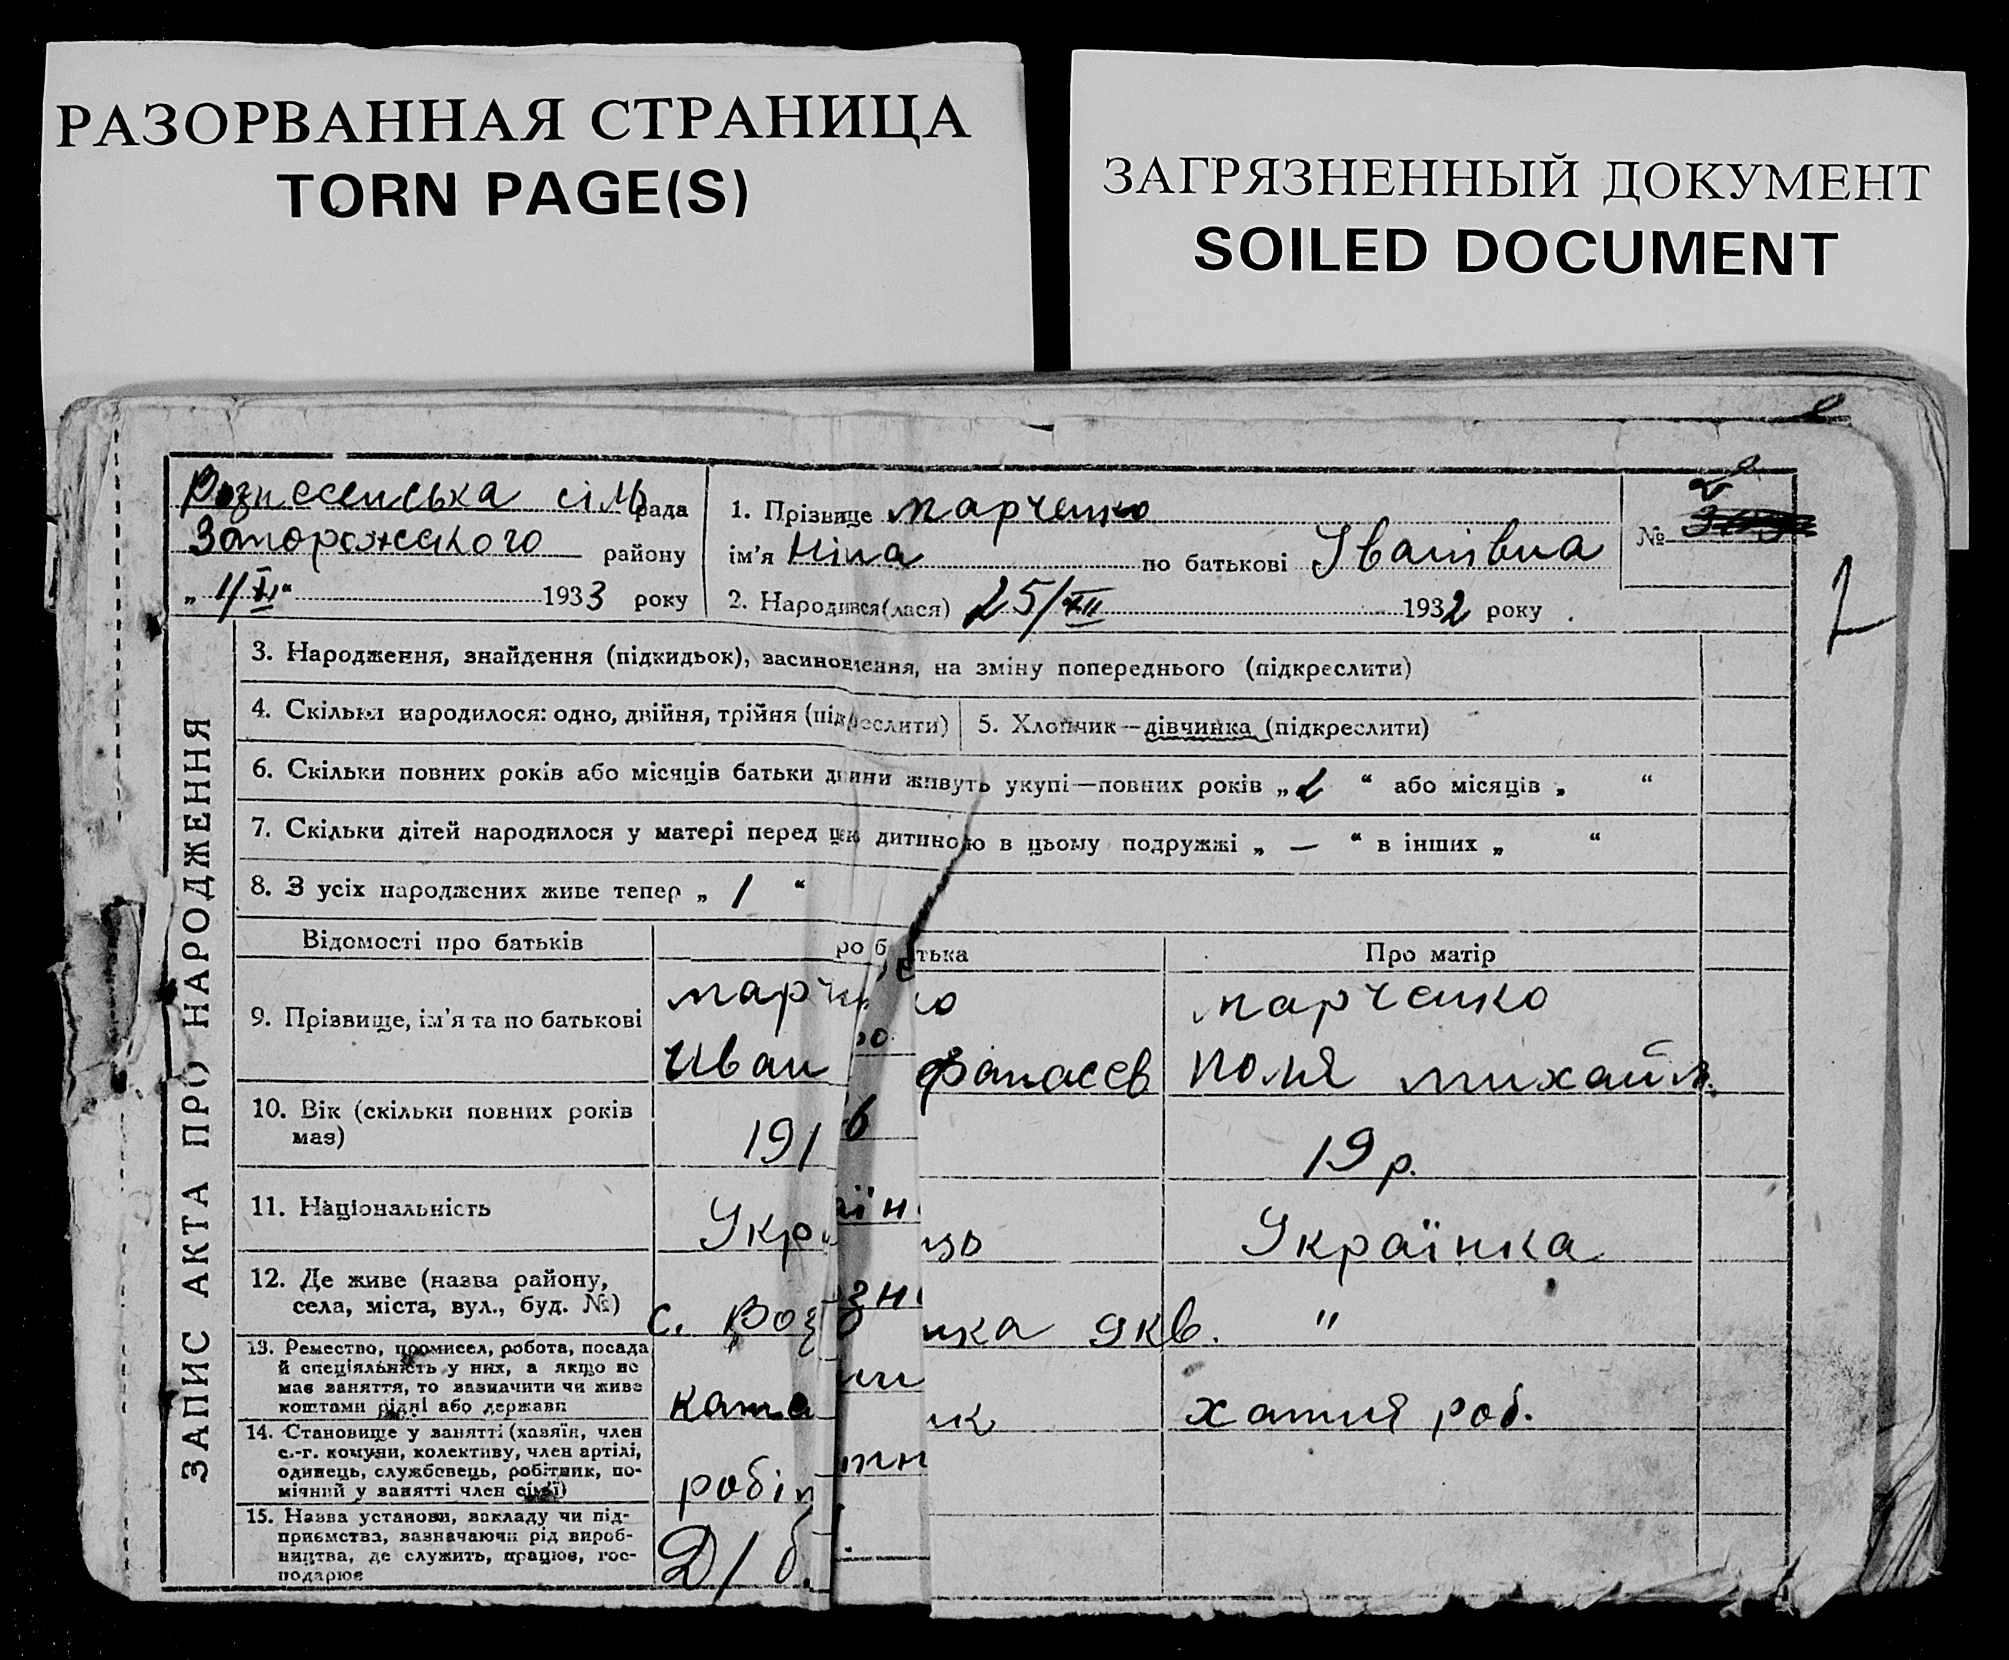 РАЗОРВАННАЯ СТРАНИЦА
TORN PAGE(S)
ЗАГРЯЗНЕННЫЙ ДОКУМЕНТ
SOILED DOCUMENT
Вознесенська сіль рада
Запорожского району
1933 року
1. Прізвище Марченко
ім'я Ніна по батькові Іванівна
2. Народився(лася) 25/XII 1932 року
№
2
ЗАПИС АКТА ПРО НАРОДЖЕННЯ
3. Народження, знайдення (підкидьок), засиновлення, на зміну попереднього (підкреслити)
4. Скільки народилося: одно, двійня, трійня (підкреслити) 5. Хлопчик—дівчинка (підкреслити)
6. Скільки повних років або місяців батьки дитини живуть укупі—повних років „ 2 “ або місяців „ “
7. Скільки дітей народилося у матері перед цею дитиною в цьому подружжі „ — “ в інших „ “
8. З усіх народжених живе тепер „ 1 “
Відомості про батьків ро б тька Про матір
9. Прізвище, ім'я та по батькові
Марченко
Иван Фанасєв
Марченко
Поля Михайл.
10. Вік (скільки повних років
має)
191
19 р.
11. Національність
Укр ць
Українка
12. Де живе (назва району,
села, міста, вул., буд. №)
с. Воз нка 9 кв. "
13. Ремество, промисел, робота, посада
й спеціяльність у них, а якщо не
має заняття, то зазначити чи живе
коштами рідні або держави
ката ик
хатня роб.
14. Становище у занятті (хазяїн, член
с.-г. комуни, колективу, член артілі,
одинець, службовець, робітник, по-
мічний у занятті член сім'ї)
робіт
15. Назва установи, закладу чи під-
приємства, зазначаючи рід вироб-
ництва, де служить, працює, гос-
подарює
Д/б.